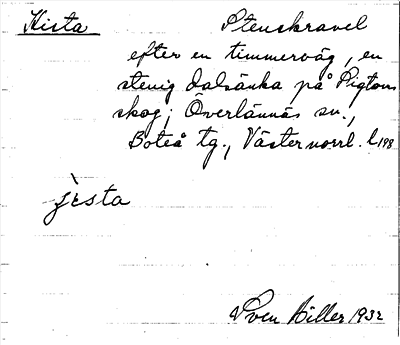 Kista Stenskravel
efter en timmerväg, en
stenig dalsänka på Pigtoms
skog; Överlännäs sn.,
Boteå tg., Västernorrl. l 198
jèsta
Sven Hiller 1932